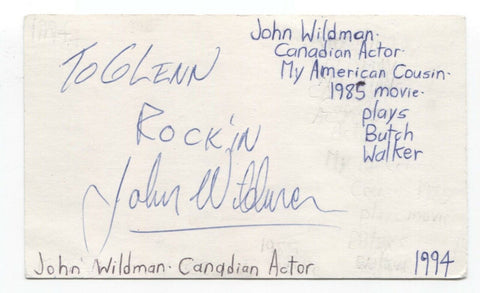 To GLENN
Rock'in
John Wildman
John Wildman.
Canadian Actor.
My American Cousin.
1985 movie.
plays
Butch
Walker
John Wildman. Canadian Actor
1994